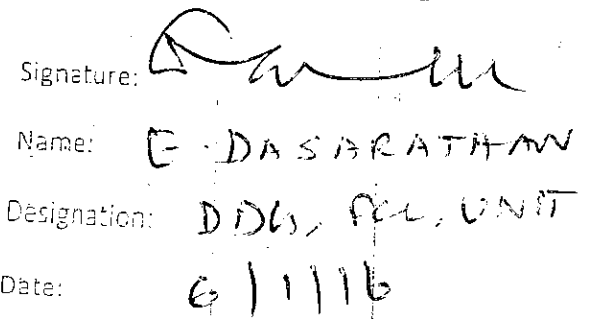 Signature:
Name: E. DASARATHAN
Designation: DDG, UNIT
Date: 6/1/16